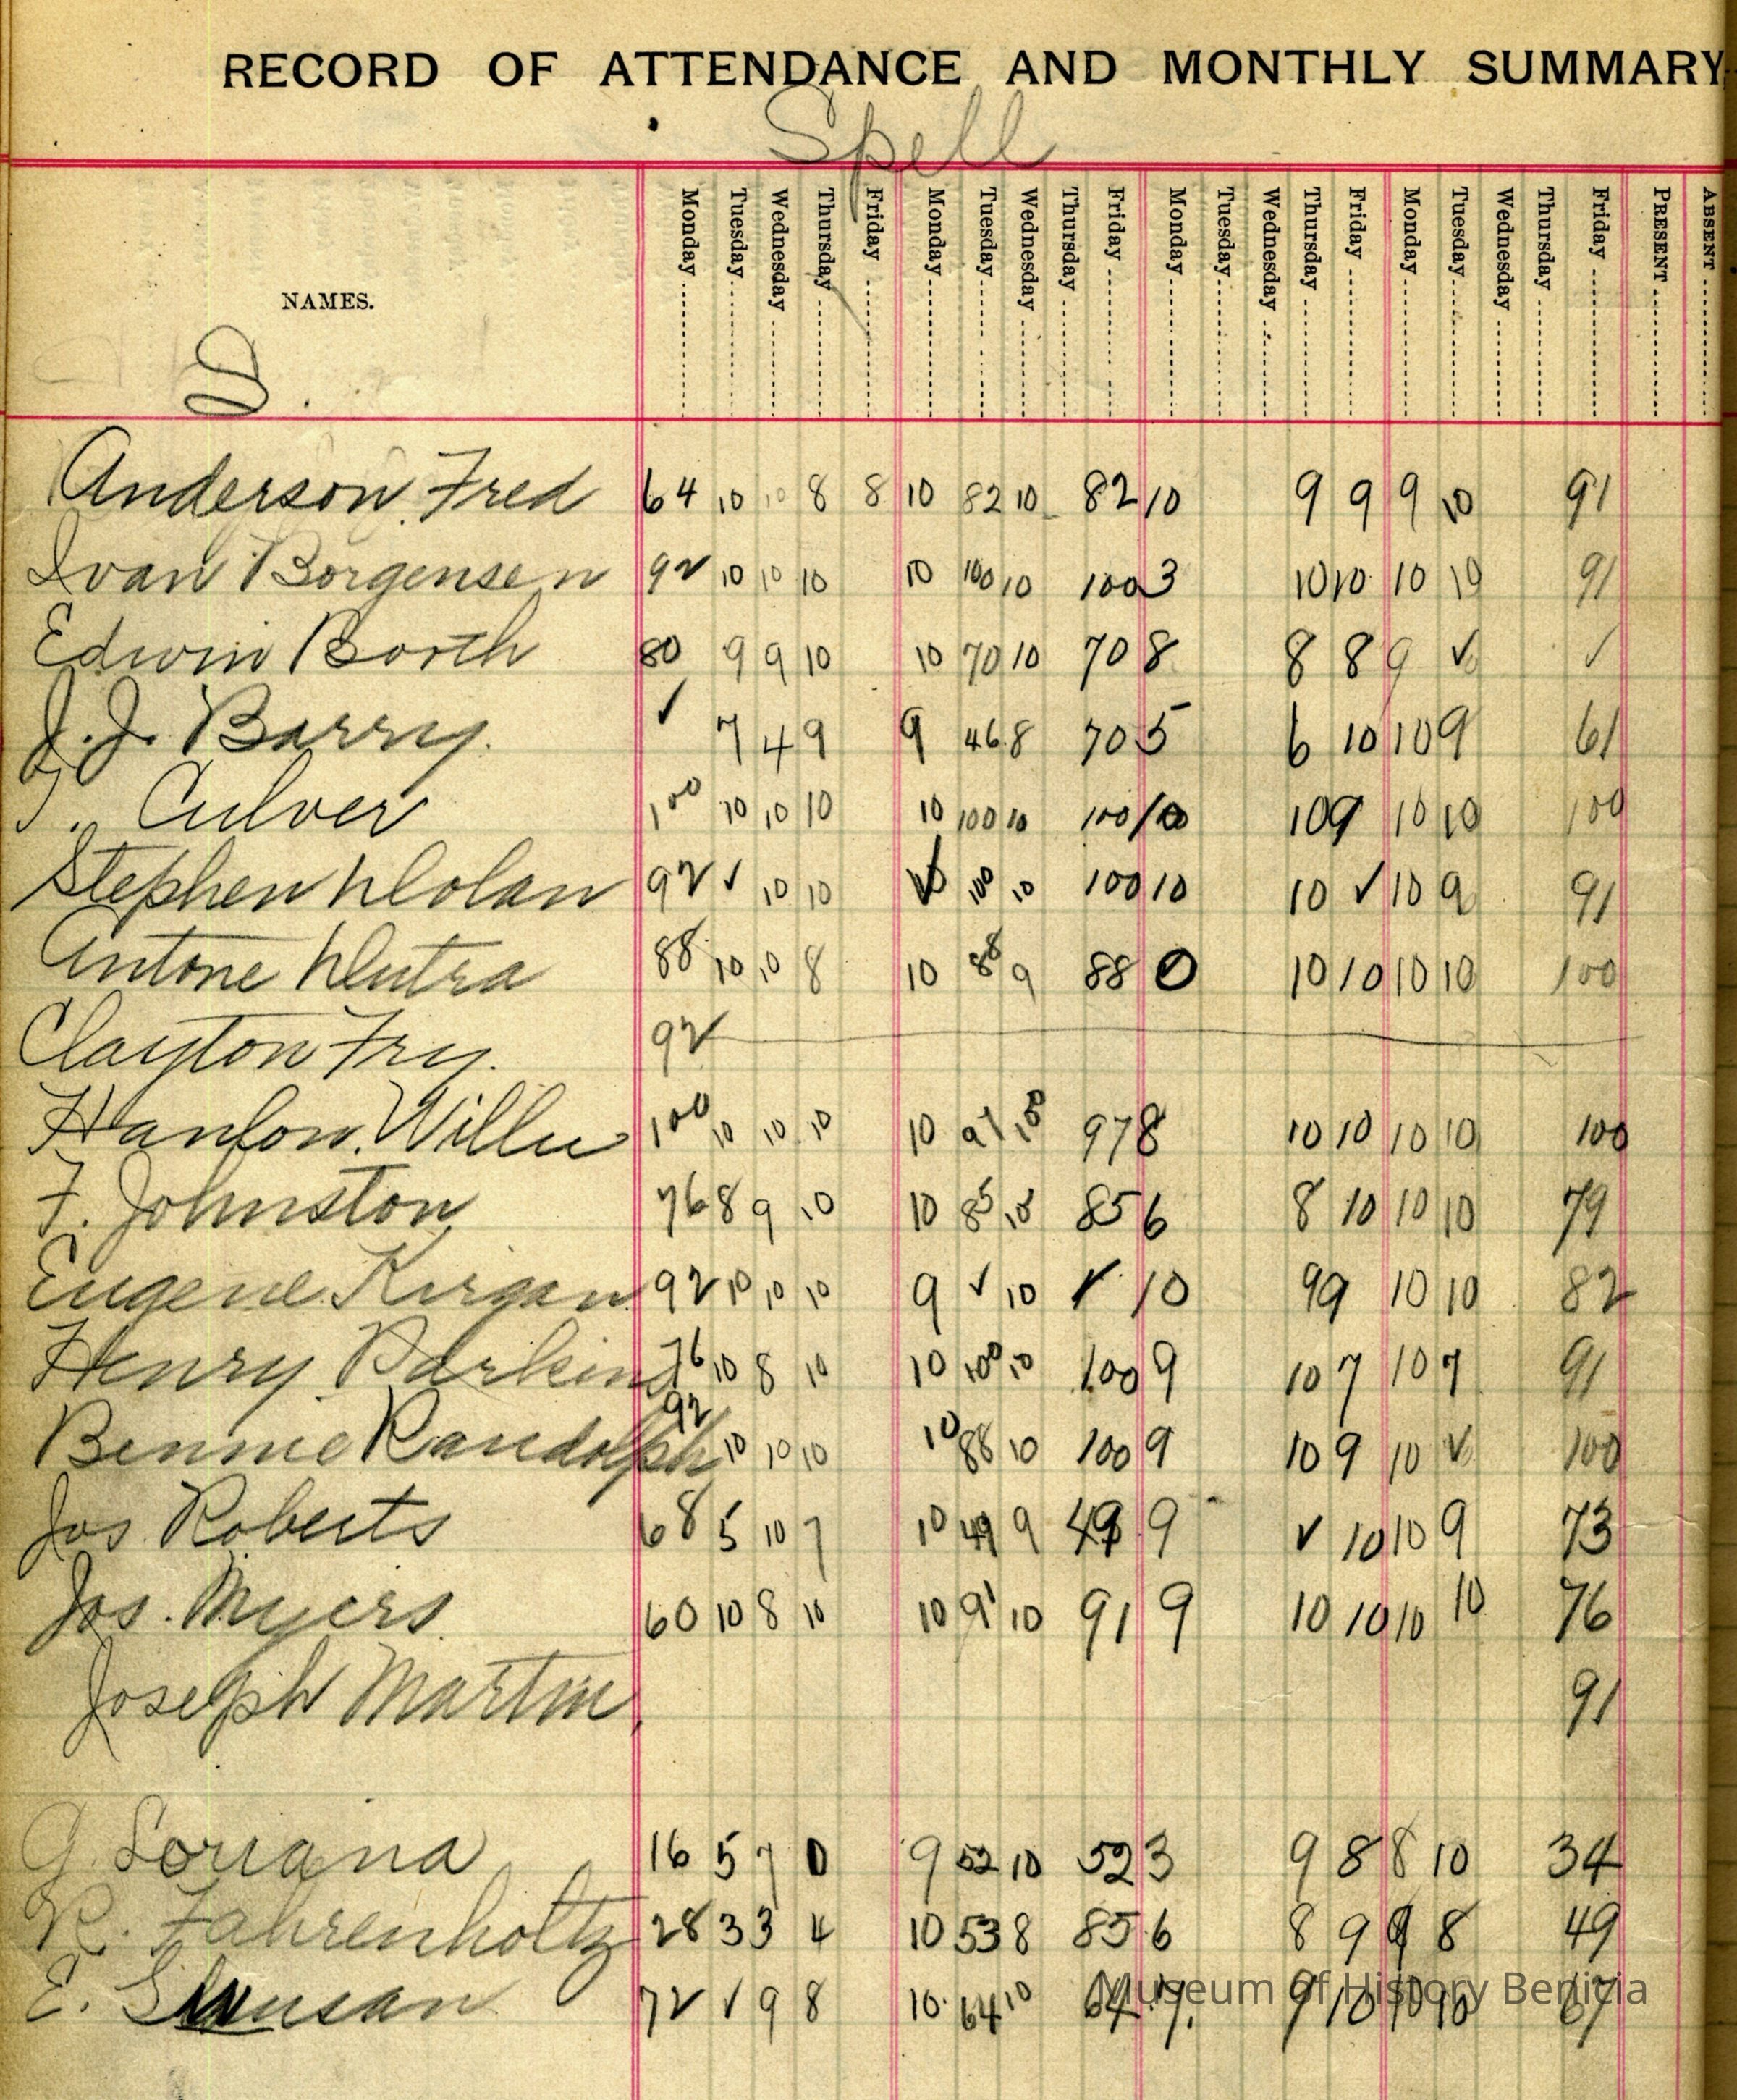 RECORD OF ATTENDANCE AND MONTHLY SUMMARY
Spell
NAMES. Monday Tuesday Wednesday Thursday Friday Monday Tuesday Wednesday Thursday Friday Monday Tuesday Wednesday Thursday Friday Monday Tuesday Wednesday Thursday Friday PRESENT ABSENT
Anderson, Fred 64 10 10 8 8 10 82 10 82 10 9 9 9 10 91
Ivan Borgensen 92 10 10 10 10 100 10 100 3 10 10 10 10 91
Edwin Booth 80 9 9 10 10 70 10 70 8 8 8 9 ✓ ✓
J. J. Barry. ✓ 7 4 9 9 46 8 70 5 6 10 10 9 61
J. Culver 100 10 10 10 10 100 10 100 10 10 9 10 10 100
Stephen Dolan 92 ✓ 10 10 100 10 100 10 10 ✓ 10 9 91
Antone Dutra 88 10 10 8 10 88 9 88 0 10 10 10 10 100
Clayton Fry. 92
Hanlon, Willie 100 10 10 10 10 97 10 97 8 10 10 10 10 100
F. Johnston 76 8 9 10 10 85 10 85 6 8 10 10 10 79
Eugene Kirgan 92 10 10 10 9 ✓ 10 ✓ 10 9 9 10 10 82
Henry Parkins 76 10 8 10 10 100 10 100 9 10 7 10 7 91
Bennie Randolph 92 10 10 10 10 88 10 100 9 10 9 10 ✓ 100
Jos. Roberts 68 5 10 7 10 49 9 49 9 ✓ 10 10 9 73
Jos. Myers 60 10 8 10 10 91 10 91 9 10 10 10 10 76
Joseph Martin 91
G. Soriana 16 5 7 0 9 52 10 52 3 9 8 8 10 34
R. Fahrenholtz 28 3 3 4 10 53 8 85 6 8 9 9 8 49
E. 72 ✓ 9 8 10 64 10 64 7. 9 10 10 10 67
Museum of History Benicia